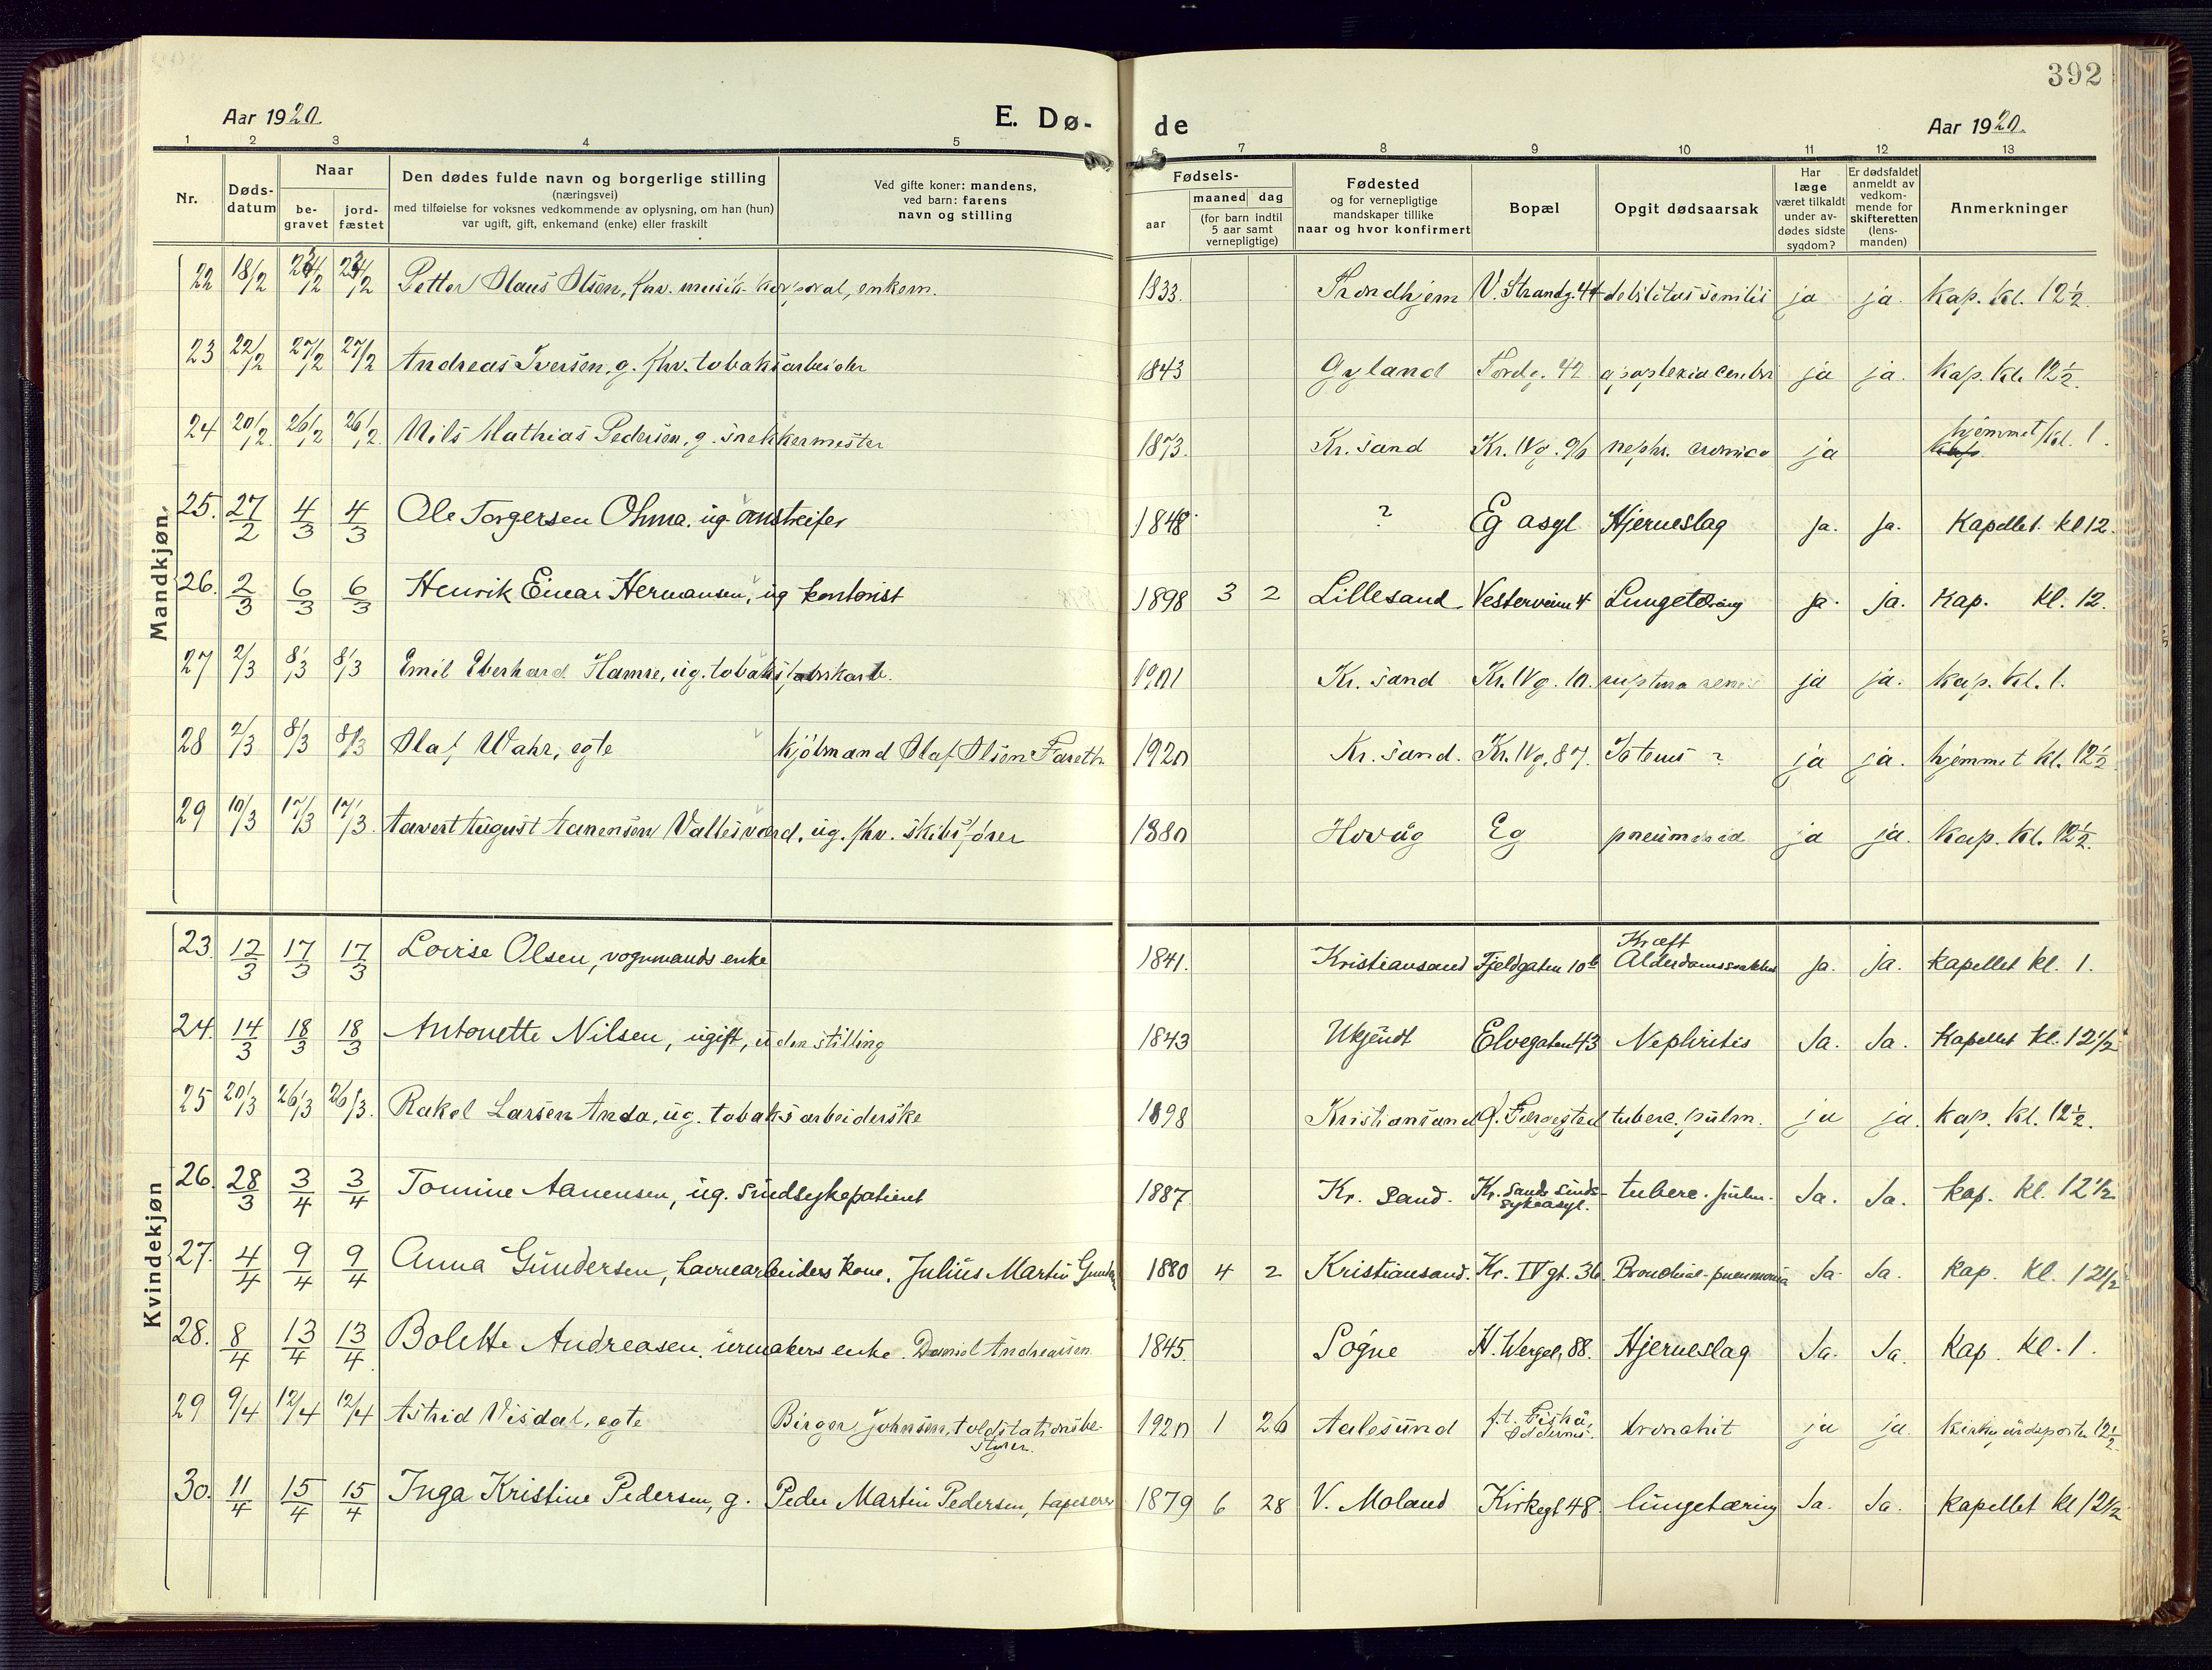 392
Aar 1920. E. Dø- de Aar 1920.
1 2 3 4 5 6 7 8 9 10 11 12 13
Nr. Dødsdatum Naar begravet jordfæstet Den dødes fulde navn og borgerlige stilling (næringsvei) med tilføielse for voksnes vedkommende av oplysning, om han (hun) var ugift, gift, enkemand (enke) eller fraskilt Ved gifte koner: mandens, ved barn: farens navn og stilling Fødsels- aar maaned dag (for barn indtil 5 aar samt vernepligtige) Fødested og for vernepligtige mandskaper tillike naar og hvor konfirmert Bopæl Opgit dødsaarsak Har læge været tilkaldt under avdødes sidste sygdom? Er dødsfaldet anmeldt av vedkommende for skifteretten (lensmanden) Anmerkninger
Mandkjøn.
22 18/2 24/2 24/2 Petter Olaus Olsen, fhv. musik-korporal, enkem. 1833. Trondhjem V. Strandg. 44 debilitas senilis ja ja. Kap. kl. 12½.
23 22/2 27/2 27/2 Andreas Iversen, g. fhv. tobaksarbeider 1843 Gyland Tordg. 42 apoplexia cerebri ja ja. Kap. kl. 12½.
24 20/2 26/2 26/2 Nils Mathias Pedersen, g. snekkermester 1873. Kr. sand Kr. IV g. 96 nephr. cronica ja hjemmet kl. 1.
25. 27/2 4/3 4/3 Ole Torgersen Ohma. ug. omstreifer 1848 ? Eg asyl Hjerneslag Ja. Ja. Kapellet kl 12.
26. 2/3 6/3 6/3 Henrik Einar Hermansen, ug kontorist 1898 3 2 Lillesand Vesterveien 4 Lungetæring ja. ja. Kap. kl. 12.
27 2/3 8/3 8/3 Emil Eberhard Hamre, ug. 1901 Kr. sand Kr. IV g. 10. ruptura renis ja ja. Kap. kl. 1.
28 2/3 8/3 8/3 Olaf Wahr, egte kjølmand Olaf Olsen 1920 Kr. sand. Kr. IV g. 87. Icterus ? ja ja. hjemmet kl. 12½
29 10/3 17/3 17/3. Aavert August Aanensen Vallesværd, ug. fhv. skibsfører 1880 Høvåg Eg pneumonia ja ja. Kap. kl. 12½.
Kvindekjøn
23. 12/3 17/3 17/3 Lovise Olsen, vognmands enke 1841. Kristiansand Fjeldgaten 10b Kræft Alderdomssvakhet ja. ja. Kapellet kl. 1.
24. 14/3 18/3 18/3 Antonette Nilsen, ugift, uden stilling 1843 Ukjendt Elvegaten 43 Nephritis Ja. Ja. Kapellet kl. 12½
25 20/3 26/3 26/3. Rakel Larsen Anda, ug. tobaksarbeiderske 1898 Kristiansand tuberc. pulm. ja ja. Kap. kl. 12½.
26. 28/3 3/4 3/4 Tomine Aanensen, ug. sindsykepatient 1887. Kr. sand. Kr. sands sindssykeasyl. tuberc. pulm. Ja. Ja. kap. kl. 12½
27. 4/4 9/4 9/4 Anna Gundersen, havnearbeiders kone. Julius Martin Gunder 1880 4 2 Kristiansand. Kr. IV gt. 36 Bronchial-pneumonia Ja Ja. kap. kl. 12½
28. 8/4 13/4 13/4 Bolette Andreasen, urmakers enke. Daniel Andreassen. 1845. Søgne H. Wergel. 88. Hjerneslag Ja. Ja. Kap. kl. 1.
29 9/4 12/4 12/4 Astrid Visdal, egte Birger Johnsen, toldstationsbestyrer. 1920 1 26 Aalesund f.t. Fiskå, Oddernes. bronchit ja ja. kirkegårdsporten 12½
30. 11/4 15/4 15/4 Inga Kristine Pedersen, g. Peder Martin Pedersen, tapeserer 1879 6 28 V. Moland Kirkegt 48. lungetæring Ja. Ja. Kapellet kl 12½